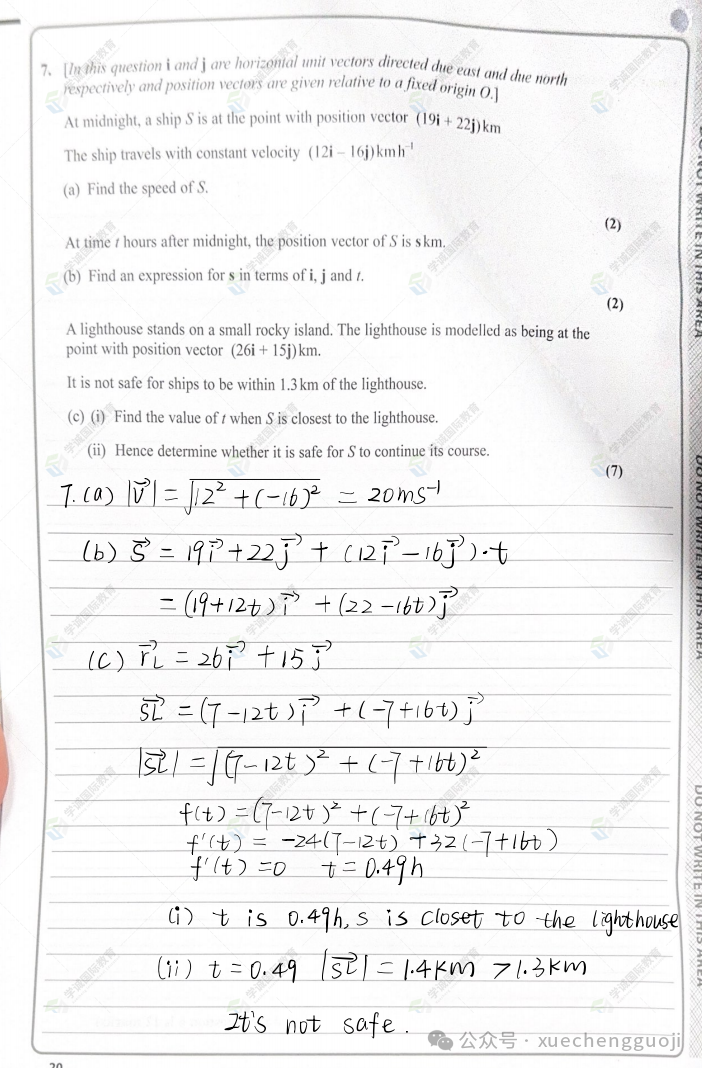 7. [In this question i and j are horizontal unit vectors directed due east and due north
respectively and position vectors are given relative to a fixed origin O.]
At midnight, a ship S is at the point with position vector (19i + 22j) km
The ship travels with constant velocity (12i – 16j) km h⁻¹
(a) Find the speed of S.
(2)
At time t hours after midnight, the position vector of S is s km.
(b) Find an expression for s in terms of i, j and t.
(2)
A lighthouse stands on a small rocky island. The lighthouse is modelled as being at the
point with position vector (26i + 15j) km.
It is not safe for ships to be within 1.3 km of the lighthouse.
(c) (i) Find the value of t when S is closest to the lighthouse.
(ii) Hence determine whether it is safe for S to continue its course.
(7)
7. (a) |v⃗| = √(12² + (-16)²) = 20 ms⁻¹
(b) s⃗ = 19i⃗ + 22j⃗ + (12i⃗ - 16j⃗)·t
= (19+12t)i⃗ + (22-16t)j⃗
(c) r⃗L = 26i⃗ + 15j⃗
SL⃗ = (7-12t)i⃗ + (-7+16t)j⃗
|SL⃗| = √((7-12t)² + (-7+16t)²)
f(t) = (7-12t)² + (-7+16t)²
f'(t) = -24(7-12t) + 32(-7+16t)
f'(t) = 0 t = 0.49h
(i) t is 0.49h, s is closet to the lighthouse
(ii) t = 0.49 |SL⃗| = 1.4km > 1.3km
It's not safe.
公众号 · xuechengguoji
20
DO NOT WRITE IN THIS AREA
DO NOT WRITE IN THIS AREA
DO NOT WRITE IN THIS AREA